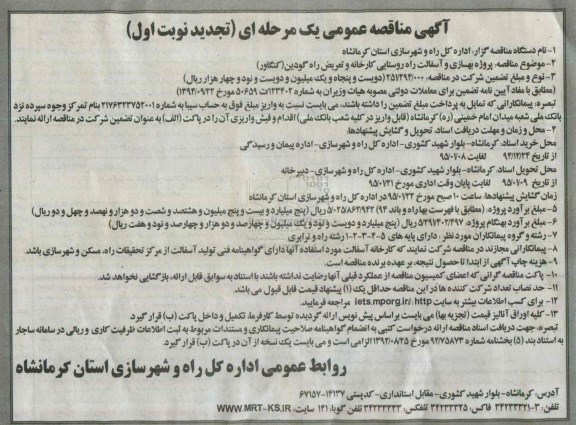 آگهی مناقصه عمومی یک مرحله ای (تجدید نوبت اول)
۱- نام دستگاه مناقصه گزار: اداره کل راه و شهرسازی استان کرمانشاه
۲- موضوع مناقصه: پروژه بهسازی و آسفالت راه روستایی کارخانه و تعریض راه گودین (کنگاور)
۳- نوع و مبلغ تضمین شرکت در مناقصه: ۲۵۱/۲۹۴/۰۰۰ (دویست و پنجاه و یک میلیون و دویست و نود و چهار هزار ریال)
(مطابق با مفاد آیین نامه تضمین برای معاملات دولتی مصوبه هیات وزیران به شماره ۱۲۳۴۰۲/ت۵۰۶۵۹ مورخ ۱۳۹۴/۰۹/۲۲)
تبصره: پیمانکارانی که تمایل به پرداخت مبلغ تضمین را داشته باشند، می بایست نسبت به واریز مبلغ فوق به حساب سیبا به شماره ۲۱۷۶۴۳۲۷۵۲۰۰۱ بنام تمرکز وجوه سپرده نزد
بانک ملی شعبه میدان امام خمینی (ره) کرمانشاه (قابل واریز در کلیه شعب بانک ملی) اقدام و فیش واریزی آن را در پاکت (الف) به عنوان تضمین شرکت در مناقصه ارائه نمایند.
۴- محل و زمان و مهلت دریافت اسناد، تحویل و گشایش پیشنهادها:
محل خرید اسناد: کرمانشاه- بلوار شهید کشوری- اداره کل راه و شهرسازی- اداره پیمان و رسیدگی
از تاریخ ۹۴/۱۲/۲۴ لغایت ۹۵/۰۱/۰۸
محل تحویل اسناد: کرمانشاه- بلوار شهید کشوری- اداره کل راه و شهرسازی- دبیرخانه
از تاریخ ۹۵/۰۱/۰۹ لغایت پایان وقت اداری مورخ ۹۵/۰۱/۲۱
زمان گشایش پیشنهادها: ساعت ۱۰ صبح مورخ ۹۵/۰۱/۲۲ در اداره کل راه و شهرسازی استان کرمانشاه
۵- مبلغ برآورد پروژه: (مطابق با فهرست بهاراه و باند ۹۴) ۵/۰۲۵/۸۶۲/۹۴۲ ریال (پنج میلیارد و بیست و پنج میلیون و هشتصد و شصت و دو هزار و نهصد و چهل و دو ریال)
۶- مبلغ برآورد بهنگام پروژه: ۵۲۹۱۴۰۲۴۹۷ ریال (پنج میلیارد و دویست و نود و یک میلیون و چهارصد و دو هزار و چهارصد و نود و هفت ریال)
۷- رشته و گروه پیمانکاران مورد نظر: دارای پایه های ۵-۴-۳-۲-۱ رشته راه و ترابری
۸- پیمانکارانی مجازند در مناقصه شرکت نمایند که کارخانه آسفالت مورد استفاده آنها دارای گواهینامه فنی تولید آسفالت از مرکز تحقیقات راه، مسکن و شهرسازی باشد.
۹- هزینه چاپ آگهی از ابتدا تا حصول نتیجه، بر عهده برنده مناقصه است.
۱۰- پاکت مناقصه گرانی که اعضای کمیسیون مناقصه از عملکرد قبلی آنها رضایت نداشته باشند با استناد به سوابق قابل ارائه، بازگشایی نخواهد شد.
۱۱- حد نصاب تعداد شرکت کننده ها در این مناقصه حداقل یک (۱) پیشنهاد قیمت قابل قبول می باشد.
۱۲- برای کسب اطلاعات بیشتر به سایت http://iets.mporg.ir مراجعه فرمایید.
۱۳- کلیه اوراق آنالیز قیمت (تجزیه بها) می بایست براساس پیش نویس ارائه گردیده توسط کارفرما، تکمیل و داخل پاکت (ب) قرار گیرد.
تبصره: جهت دریافت اسناد مناقصه ارائه درخواست کتبی به انضمام گواهینامه صلاحیت پیمانکاری و مستندات مربوط به ثبت اطلاعات ظرفیت کاری و ریالی در سامانه ساجار
به استناد بند (۵) بخشنامه شماره ۹۲/۷۵۸۷۳ مورخ ۱۳۹۲/۰۸/۲۵ الزامی است و می بایست یک نسخه از آن در پاکت (ب) قرار گیرد.
روابط عمومی اداره کل راه و شهرسازی استان کرمانشاه
آدرس: کرمانشاه- بلوار شهید کشوری- مقابل استانداری- کدپستی ۱۴۱۳۷-۶۷۱۵۷
تلفن: ۳-۳۴۲۳۳۳۲۱ فاکس: ۳۴۲۳۳۳۲۵ تلفکس: ۳۴۲۳۳۳۳۳ تلفن گویا: ۱۴۱ سایت: WWW.MRT-KS.IR